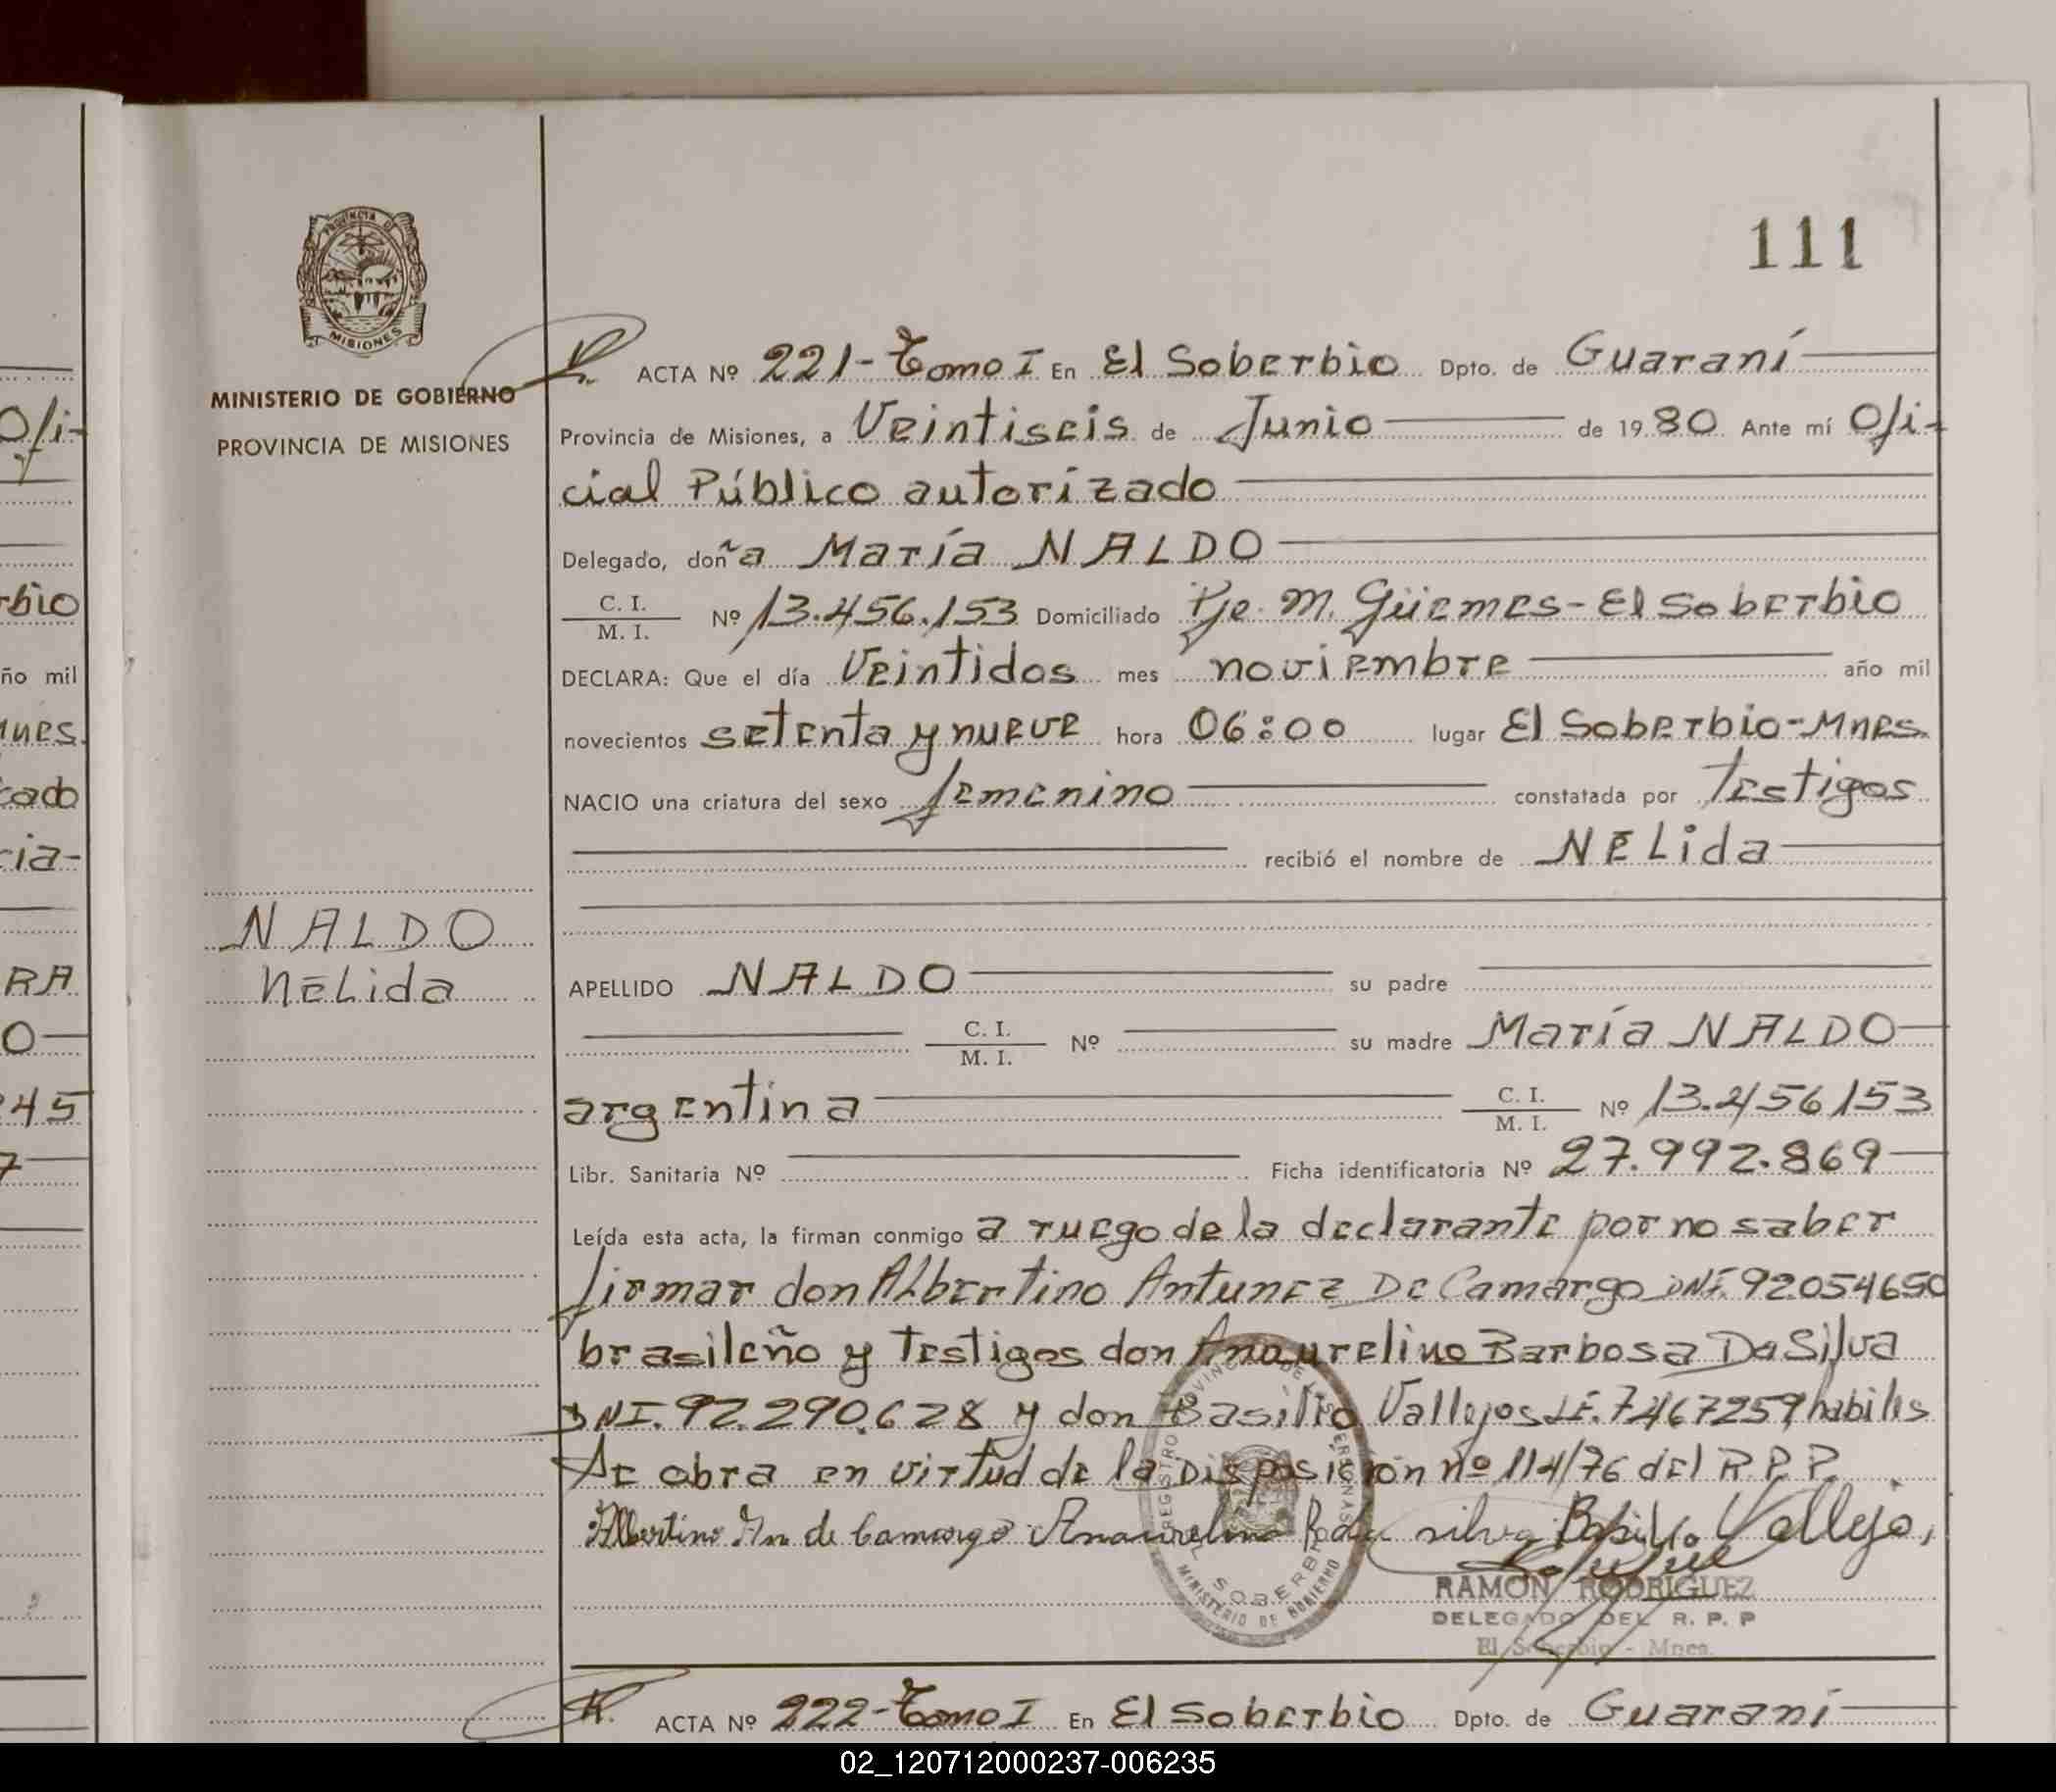 111
PROVINCIA D
MISIONES
MINISTERIO DE GOBIERNO
PROVINCIA DE MISIONES
ACTA Nº 221-Tomo I En El Soberbio Dpto. de Guaraní
Provincia de Misiones, a Veintiseis de Junio de 1980 Ante mí Ofi-
cial Público autorizado
Delegado, doña María NALDO
C. I.
M. I. Nº 13.456.153 Domiciliado Pje. M. Güemes-El Soberbio
DECLARA: Que el día Veintidos mes noviembre año mil
novecientos setenta y nueve hora 06:00 lugar El Soberbio-Mnes.
NACIO una criatura del sexo femenino constatada por Testigos
recibió el nombre de NELida
NALDO
NELida
APELLIDO NALDO su padre
C. I.
M. I. Nº su madre María NALDO
argentina C. I.
M. I. Nº 13.456153
Libr. Sanitaria Nº Ficha identificatoria Nº 27.992.869
Leída esta acta, la firman conmigo a ruego de la declarante por no saber
firmar don Albertino Antunez De Camargo DNI. 92054650
brasileño y Testigos don Anaurelino Barbosa Da Silva
DNI. 92.290.628 y don Basilio Vallejos LE. 7467259 habiles
Se obra en virtud de la Disposición nº 114/76 del R.P.P.
Albertino An de Camargo Anaurelino silva Basilio Vallejo,
REGISTRO PROVINCIAL DE LAS PERSONAS
EL SOBERBIO
MINISTERIO DE GOBIERNO
RAMON RODRIGUEZ
DELEGADO DEL R. P. P
El Soberbio - Mnes.
ACTA Nº 222-Tomo I En El Soberbio Dpto. de Guaraní
Ofi-
rbio
ño mil
nes.
cado
cia-
RA
O
245
7
02_120712000237-006235